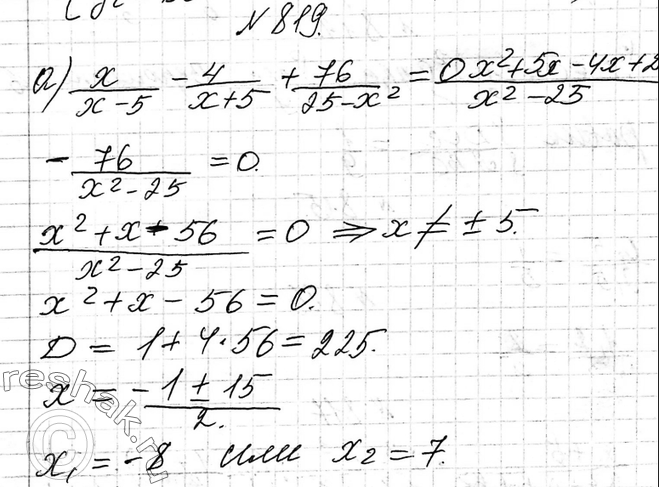 № 819.
а) x/(x-5) - 4/(x+5) + 76/(25-x²) = 0 x²+5x-4x+2/(x²-25)
- 76/(x²-25) = 0.
(x²+x-56)/(x²-25) = 0 ⇒ x ≠ ±5.
x²+x-56=0.
D = 1+4·56=225.
x = (-1±15)/2.
x₁ = -8 или x₂ = 7.
reshak.ru
©